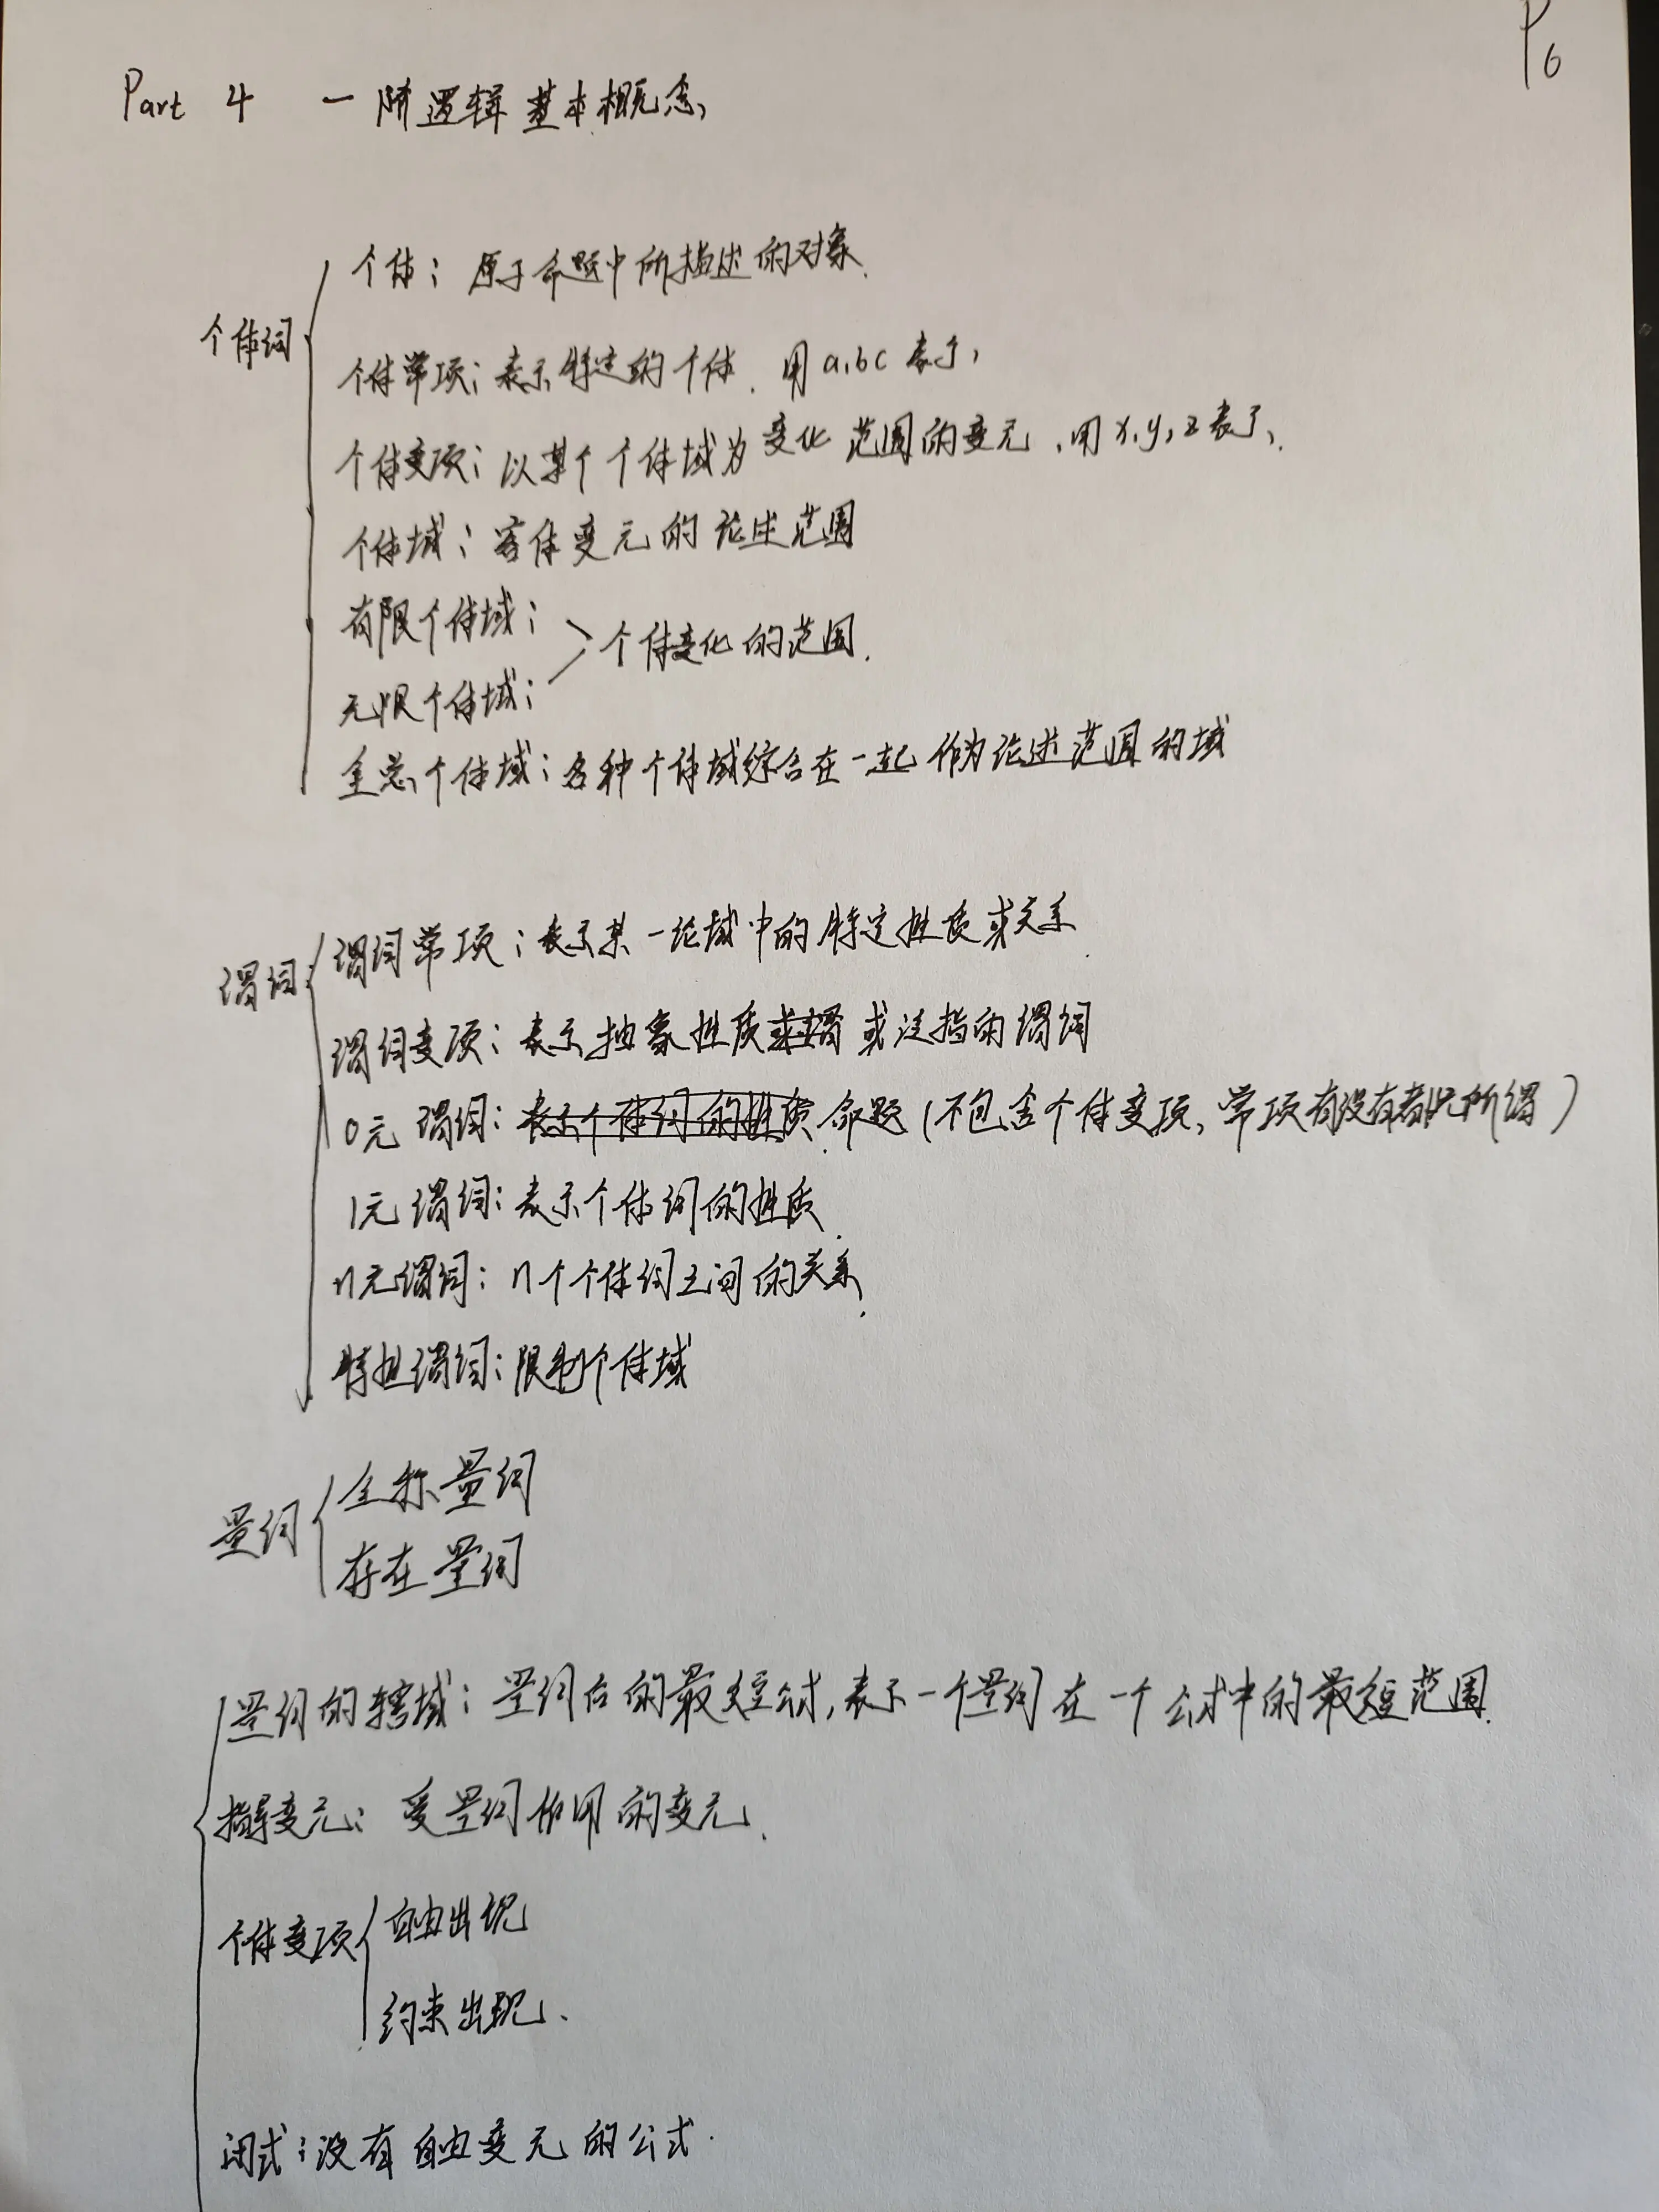 P6
Part 4 一阶逻辑基本概念
个体：原子命题中所描述的对象.
个体词
个体常项：表示特定的个体. 用a,b,c表示,
个体变项：以某个个体域为变化范围的变元, 用x,y,z表示,
个体域：客体变元的论述范围
有限个体域：
个体变化的范围.
无限个体域：
全总个体域：各种个体域综合在一起作为论述范围的域
谓词常项：表示某一论域中的特定性质或关系
谓词
谓词变项：表示抽象性质或 或泛指的谓词
0元谓词：表示个体词的性质 命题（不包含个体变项、常项有没有都无所谓）
1元谓词：表示个体词的性质.
n元谓词：n个个体词之间的关系.
特性谓词：限制个体域
全称量词
量词
存在量词
量词的辖域：量词后的最短公式, 表示一个量词在一个公式中的最短范围.
指导变元：受量词作用的变元.
自由出现
个体变项
约束出现.
闭式：没有自由变元的公式.